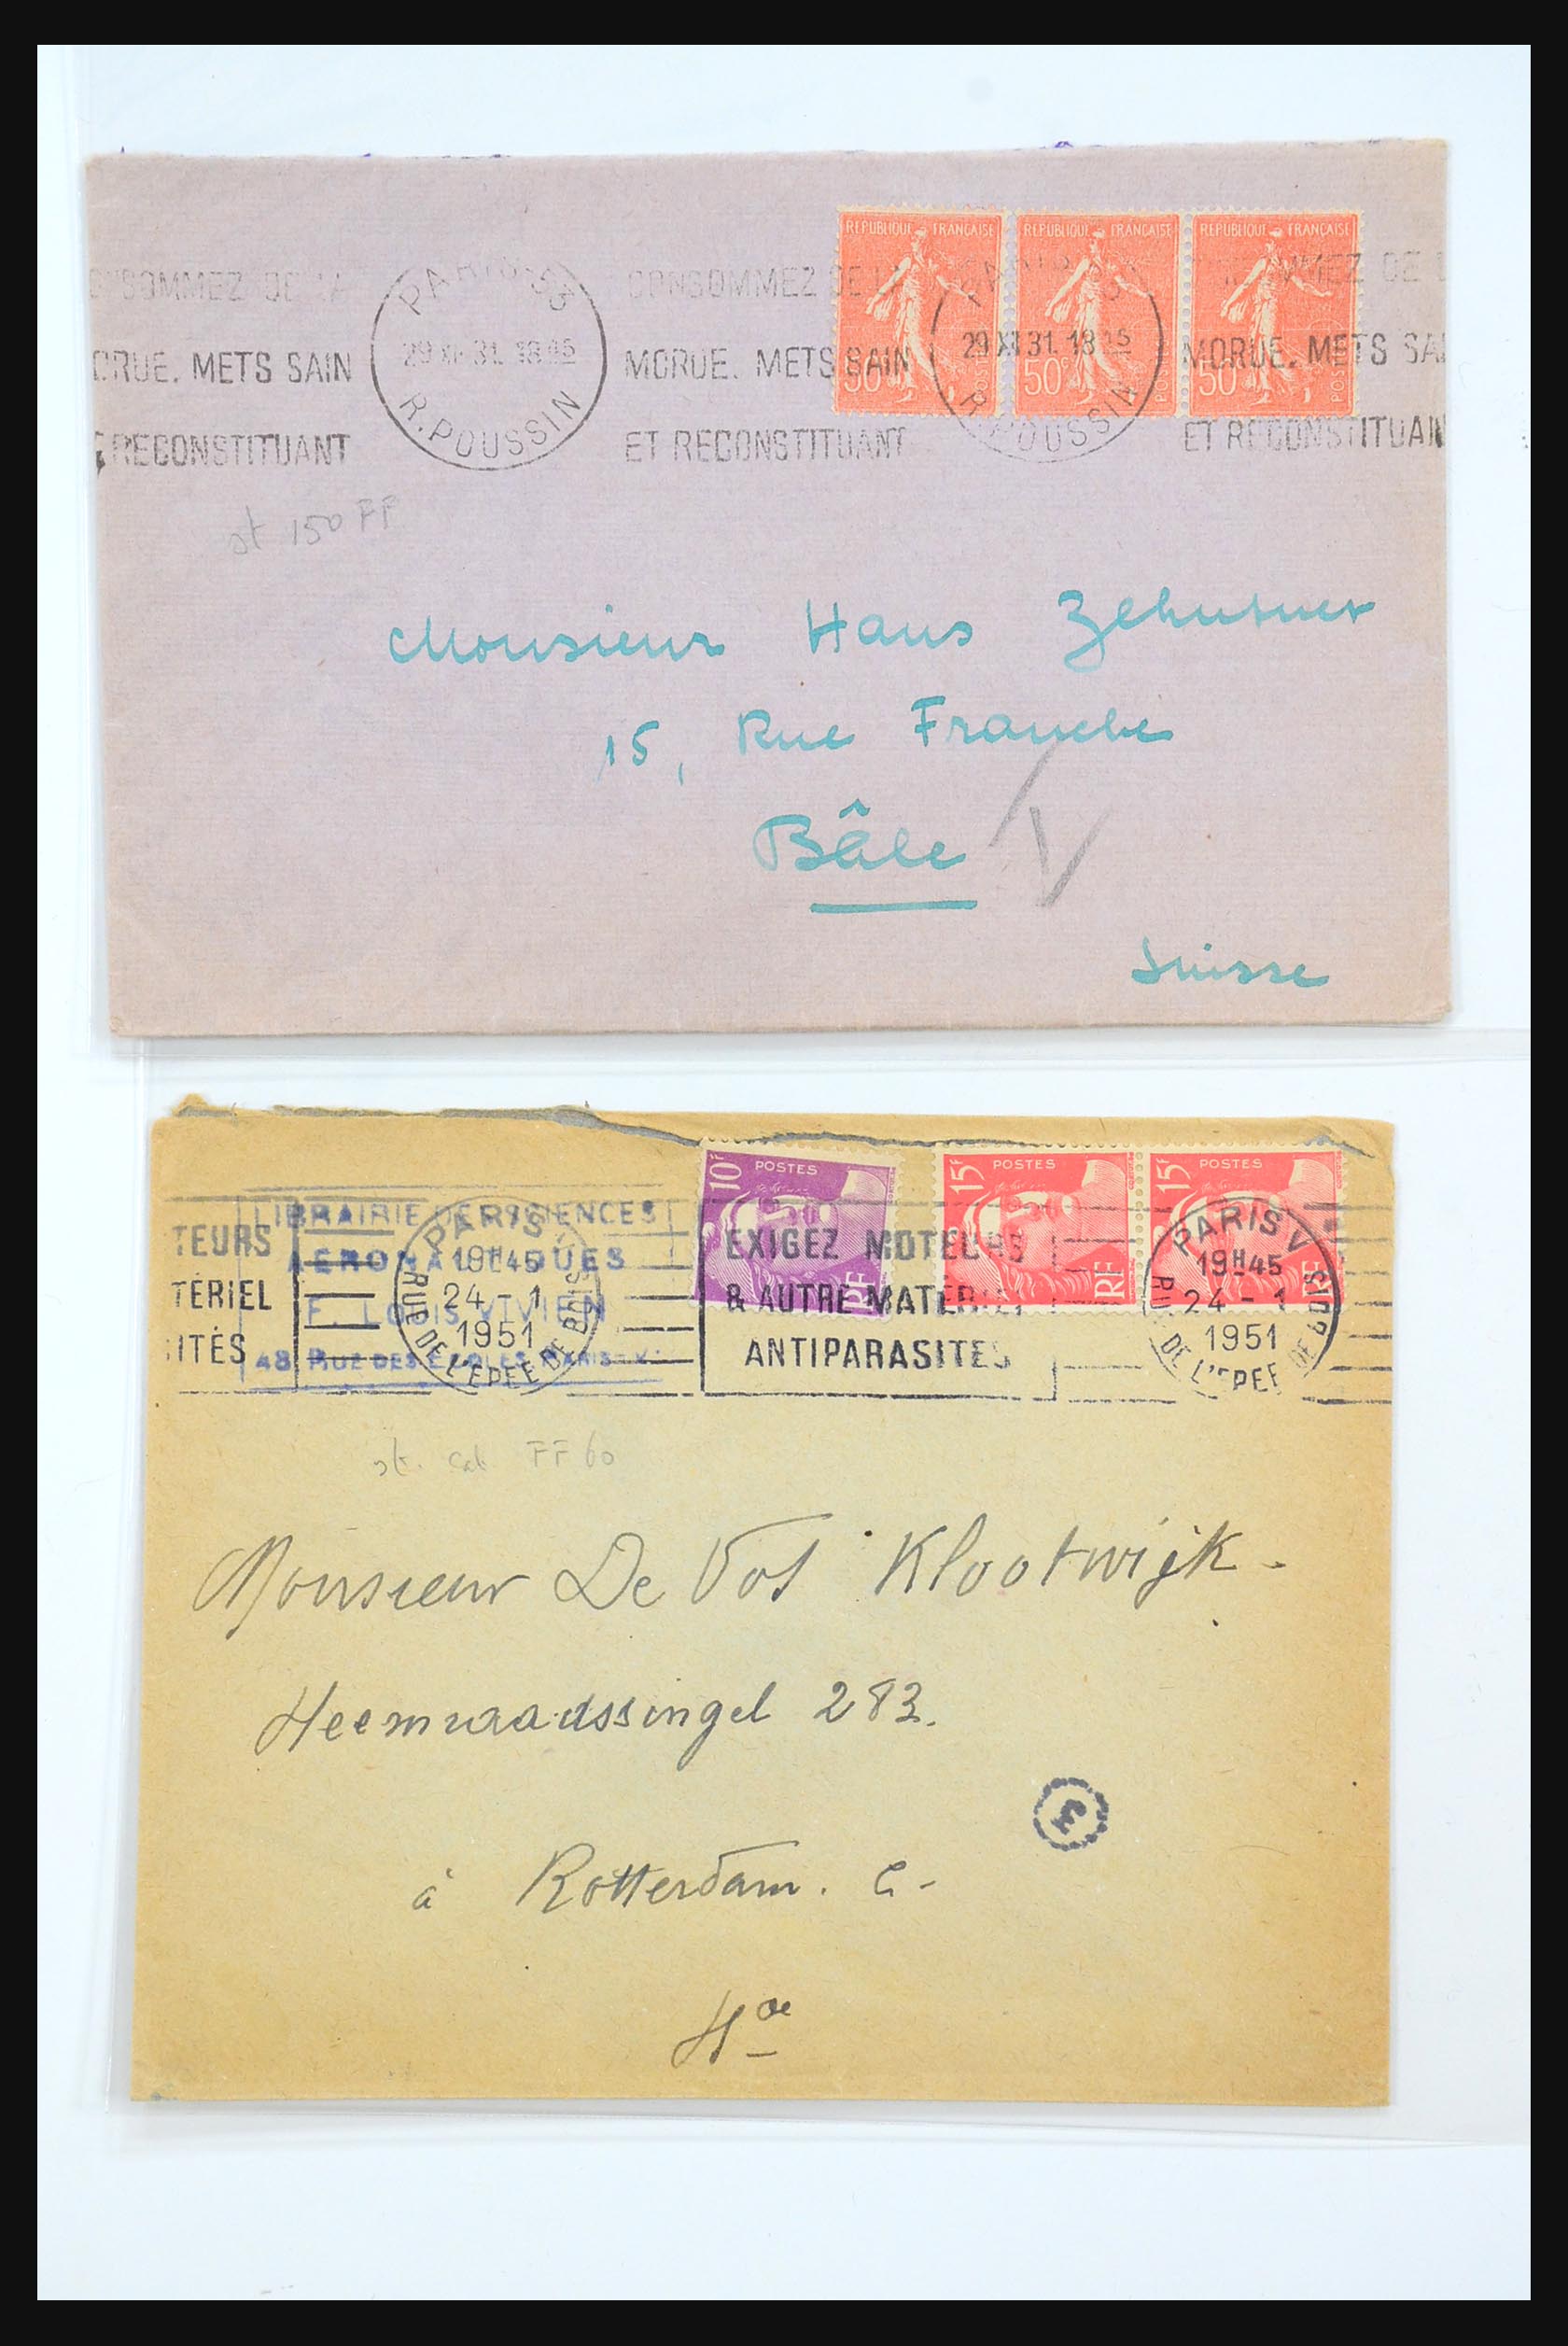 REPUBLIQUE FRANÇAISE REPUBLIQUE FRANÇAISE REPUBLIQUE FRANÇAISE
50c 50c 50c
CONSOMMEZ DE
MORUE. METS SAIN
ET RECONSTITUANT
PARIS
29 XI 31. 18 45
R. POUSSIN
CONSOMMEZ DE
MORUE. METS SAIN
ET RECONSTITUANT
29 XI 31. 18
R. POUSSIN
MORUE. METS SA
ET RECONSTITUAN
st 150 FF
Monsieur Hans Zehntner
15, Rue Franche
Bâle
Suisse
10F POSTES RF
15F POSTES RF
15F POSTES RF
TEURS
TÉRIEL
ITÉS
LIBRAIRIE DES SCIENCES
AERONAUTIQUES
F. LOUIS VIVIEN
48 RUE DES ECOLES PARIS-V
PARIS V
19H45
24 - 1
1951
RUE DE L'EPEE DE BOIS
EXIGEZ MOTEURS
& AUTRE MATÉRIEL
ANTIPARASITES
PARIS V
19H45
24 - 1
1951
RUE DE L'EPEE DE BOIS
st. cat FF 60
Monsieur De Vos Klootwijk -
Heemraadssingel 283.
3
à Rotterdam. C -
Hde